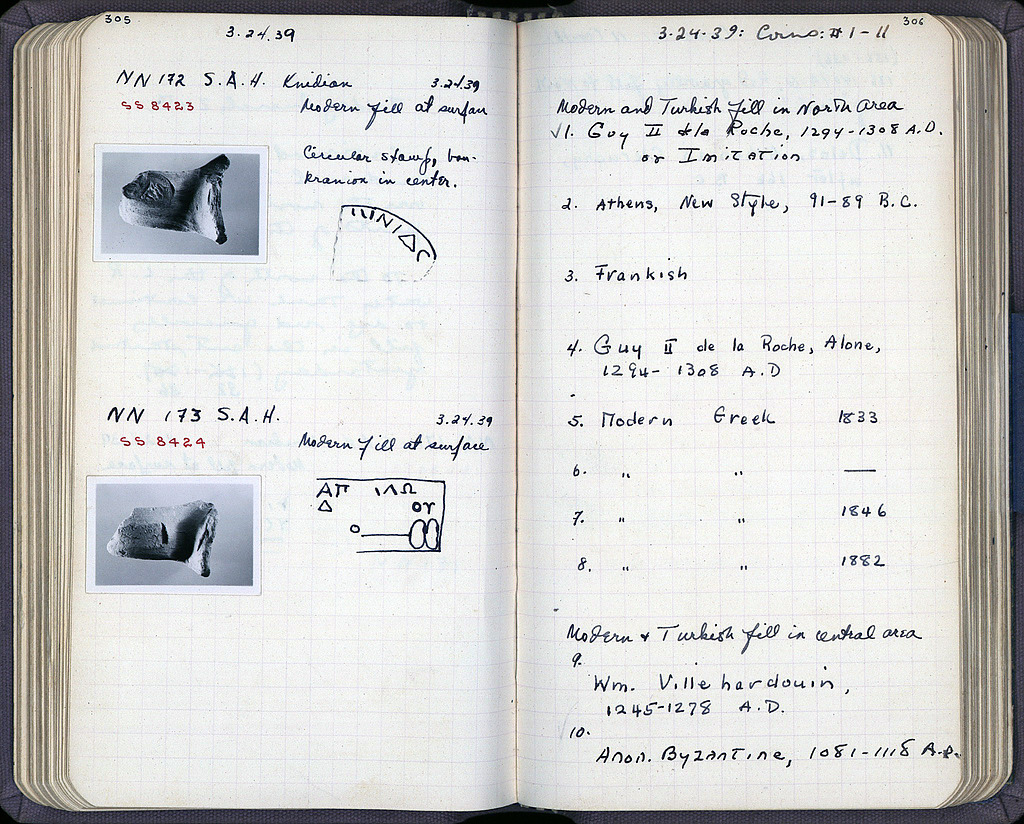 305
3.24.39
NN 172 S.A.H. Knidian 3.24.39
SS 8423 Modern fill at surface
Circular stamp, bou-
kranion in center.
ΝΙΔΟ
NN 173 S.A.H. 3.24.39
SS 8424 Modern fill at surface
ΑΠ ΙΛΩ
Δ ΟΥ
306
3-24-39: Coins: #1-11
Modern and Turkish fill in North area
√1. Guy II de la Roche, 1294-1308 A.D.
or Imitation
2. Athens, New Style, 91-89 B.C.
3. Frankish
4. Guy II de la Roche, Alone,
1294-1308 A.D
5. Modern Greek 1833
6. " " —
7. " " 1846
8. " " 1882
Modern + Turkish fill in central area
9.
Wm. Villehardouin,
1245-1278 A.D.
10.
Anon. Byzantine, 1081-1118 A.D.